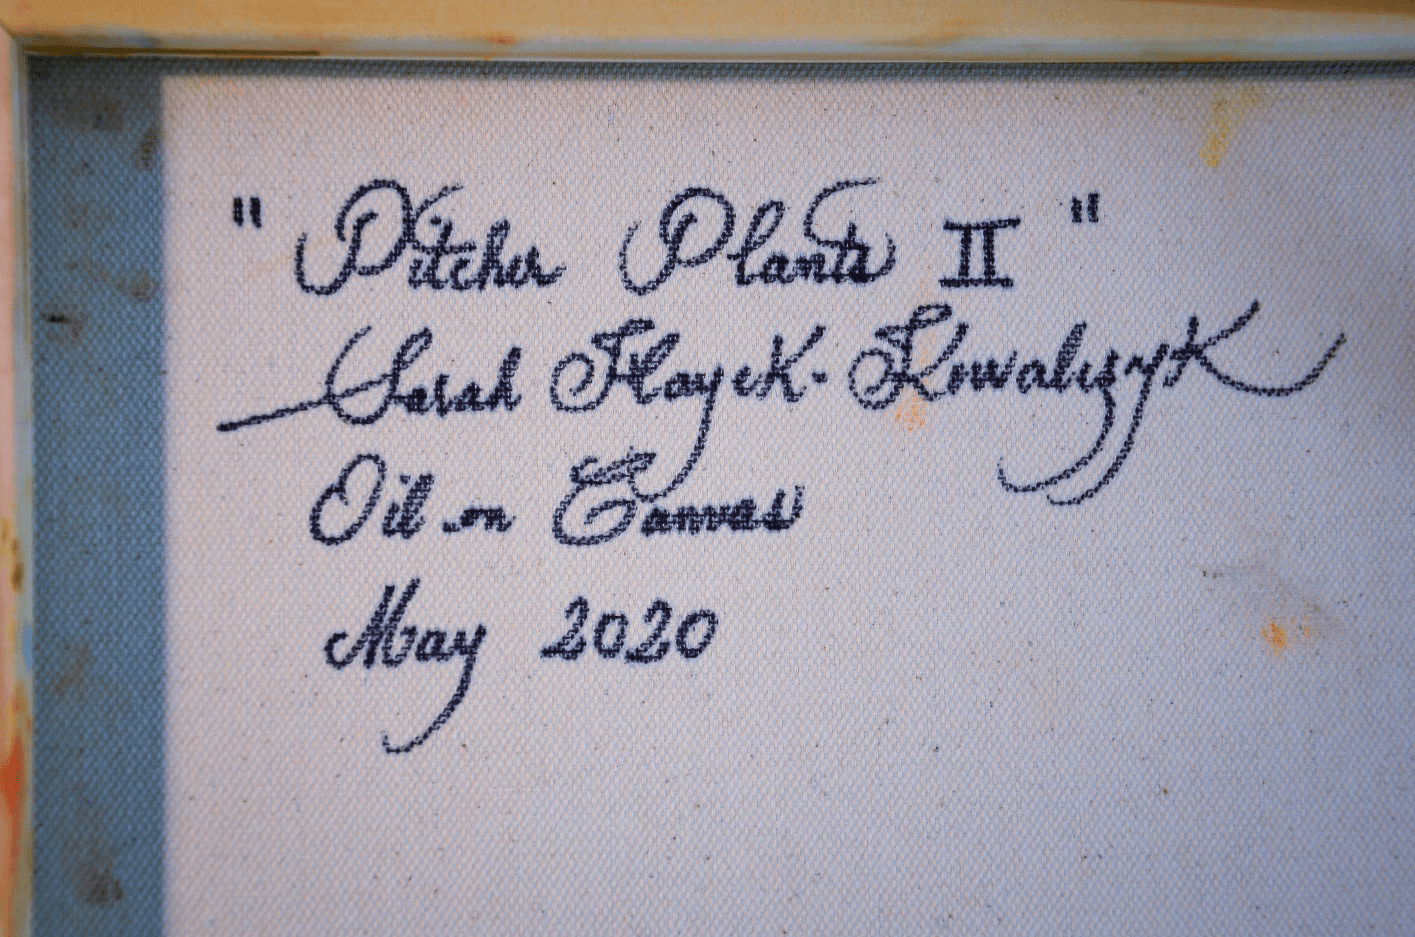 "Pitcher Plants II"
Sarah Hayek-Kowalczyk
Oil on Canvas
May 2020